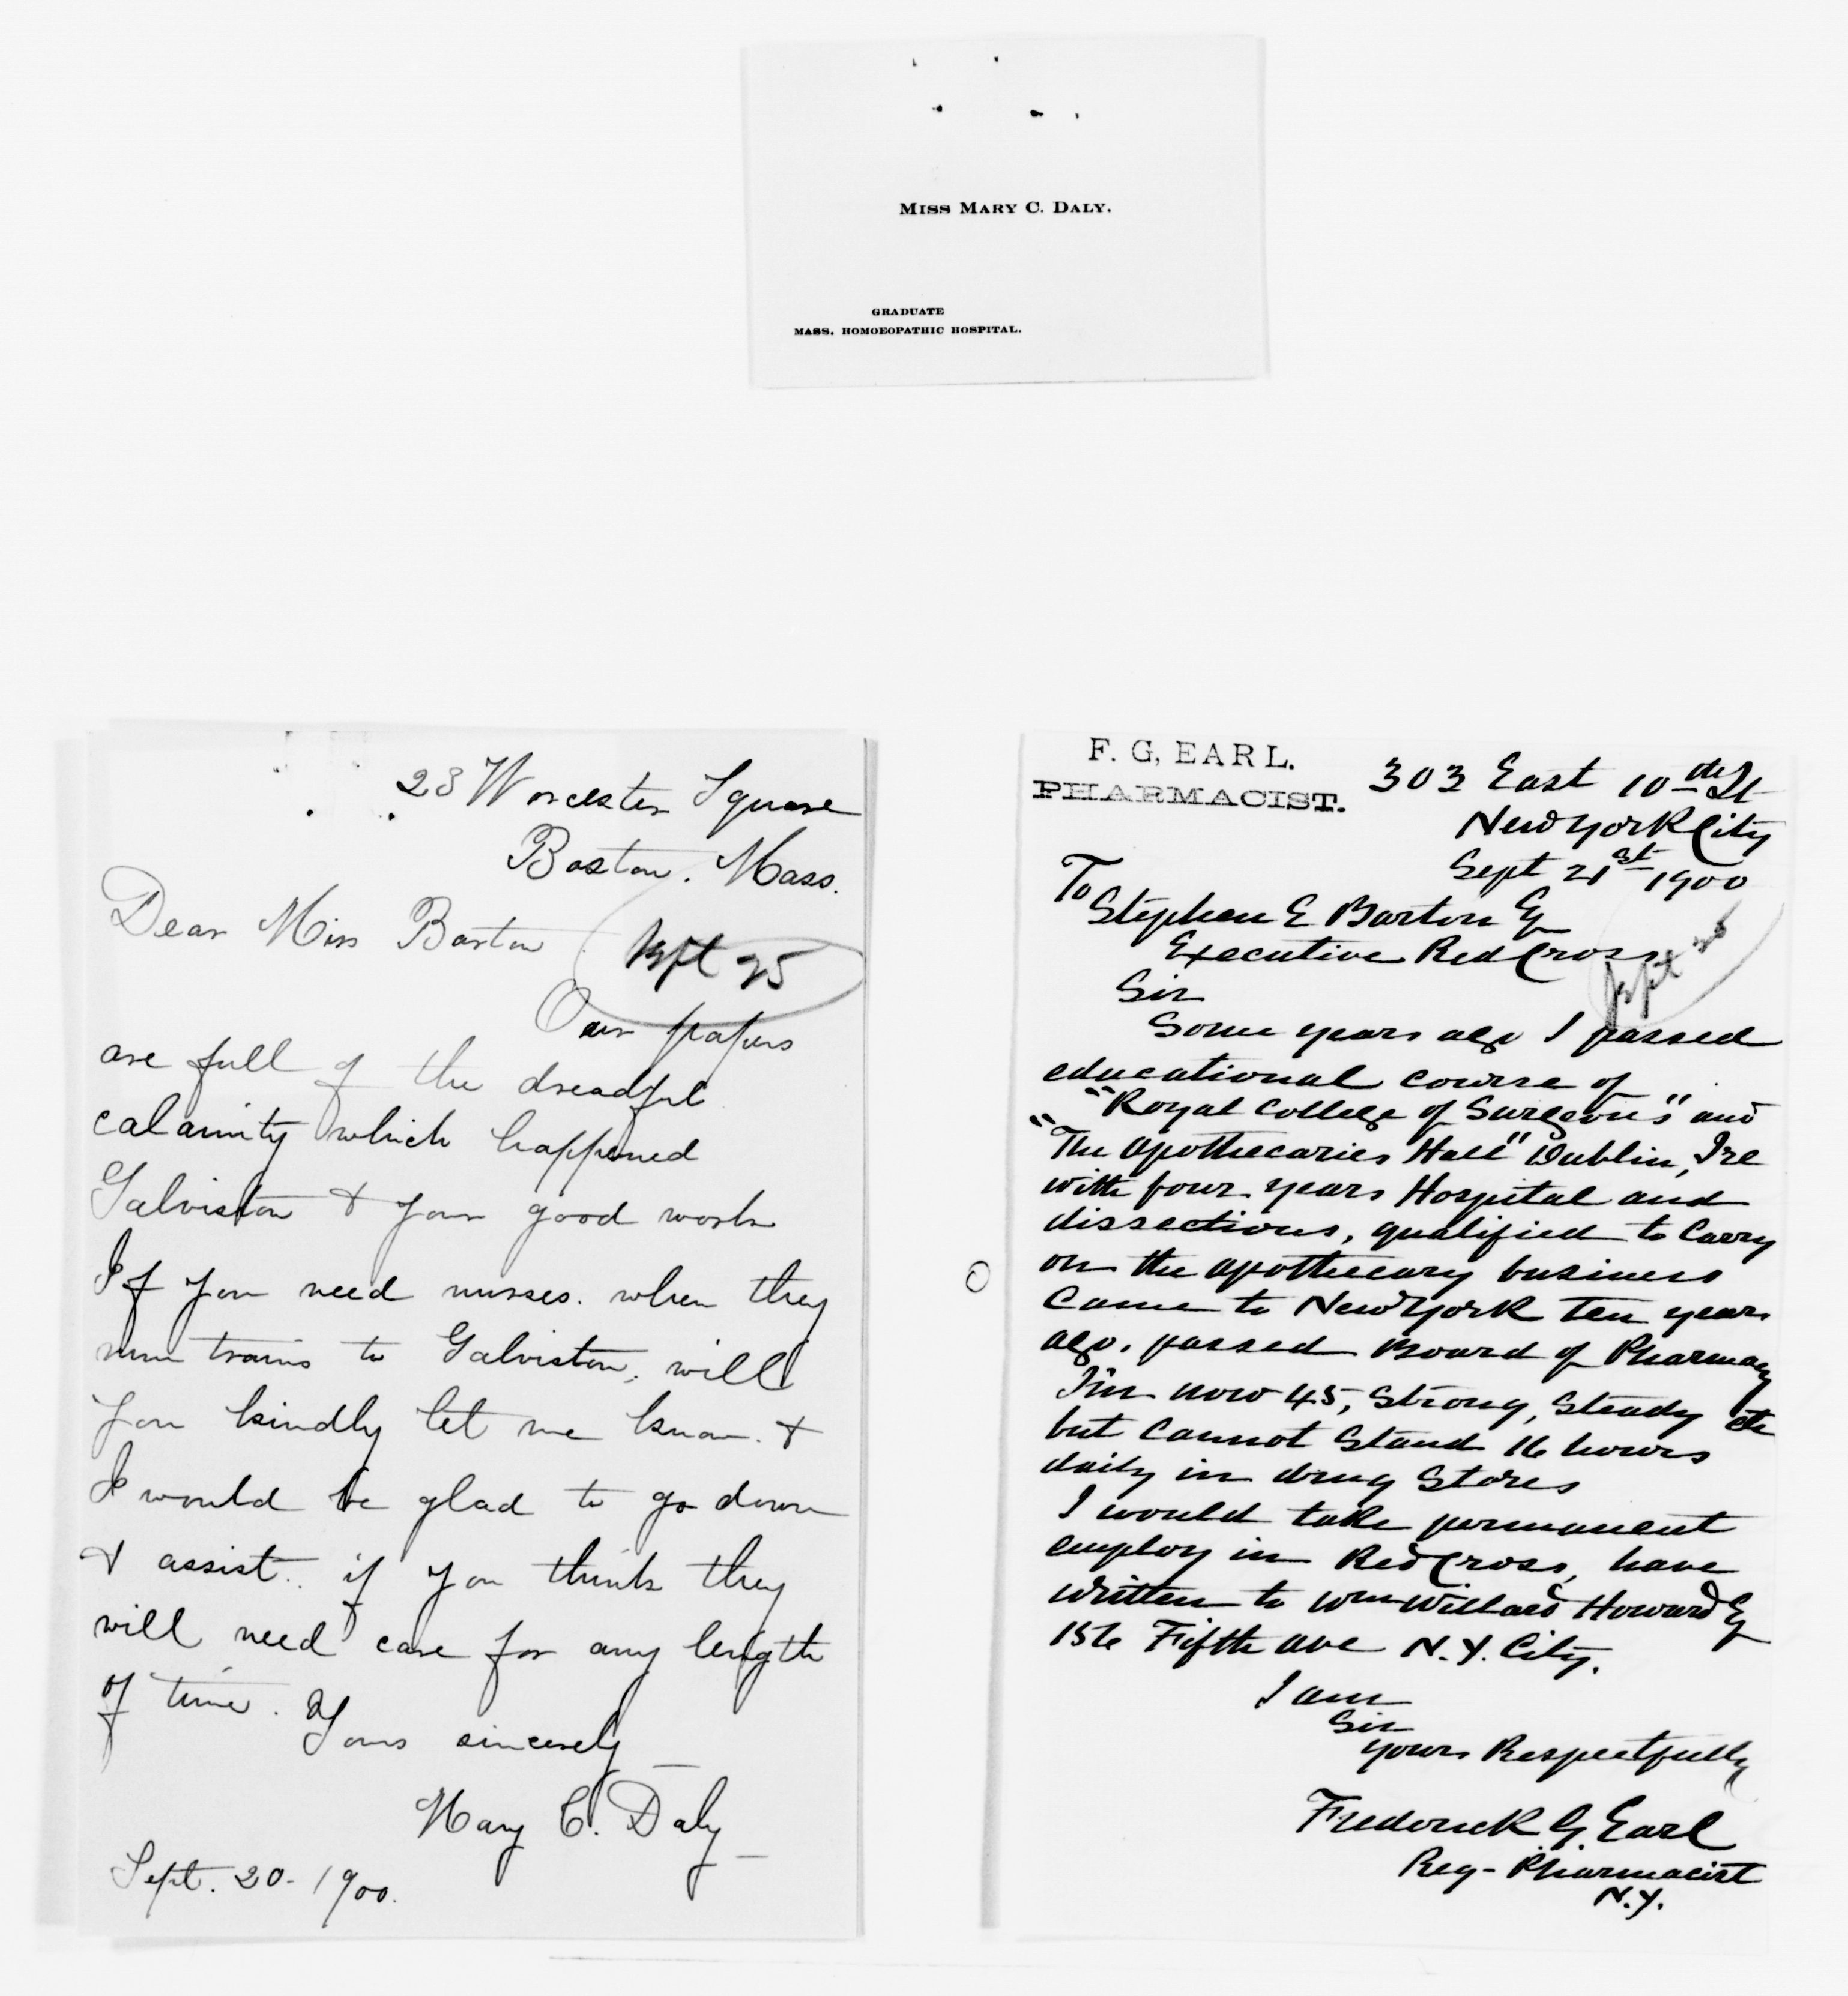 MISS MARY C. DALY.
GRADUATE
MASS. HOMOEOPATHIC HOSPITAL.
23 Worcester Square
Boston. Mass.
Dear Miss Barton
Sept 25
Our papers
are full of the dreadful
calamity which happened
Galviston & your good work
If you need nurses. when they
run trains to Galviston, will
you kindly let me know. &
I would be glad to go down
& assist.. if you think they
will need care for any length
of time. Yours sincerely
Mary C. Daly
Sept. 20 - 1900.
F. G, EARL.
PHARMACIST.
303 East 10th St
New York City
Sept 21st 1900
To
Stephen E Barton Eq
Executive Red Cross
Sept 25
Sir
Some years ago I passed
educational course of
"Royal College of Surgeons" and
"The Apothecaries Hall" Dublin, Ire
with four years Hospital and
dissections, qualified to carry
on the apothecary business
Came to New York ten years
ago. passed Board of Pharmacy
I'm now 45, Strong, Steady etc
but cannot stand 16 hours
daily in drug Stores
I would take permanent
employ in Red Cross, have
written to Wm Willard Howard Eq
156 Fifth ave N.Y. City.
I am
Sir
yours Respectfully
Frederick G. Earl
Reg - Pharmacist
N.Y.